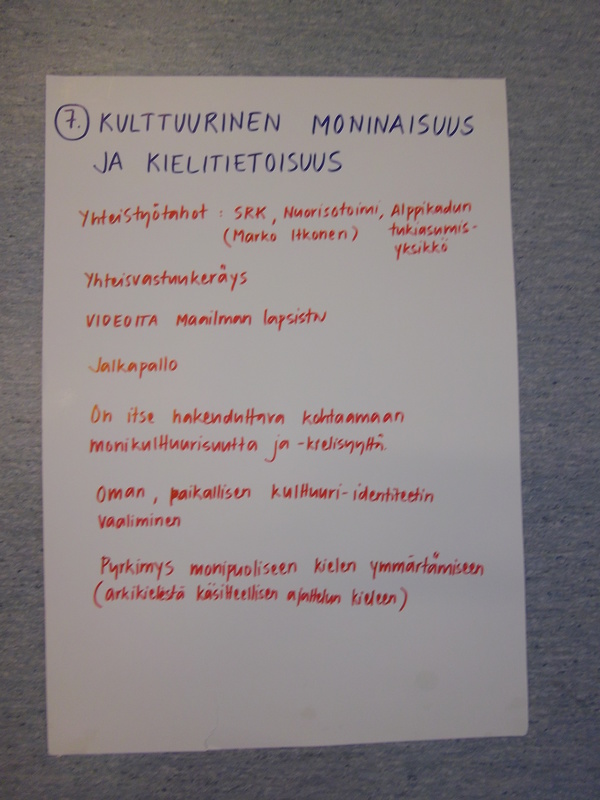 7. KULTTUURINEN MONINAISUUS
JA KIELITIETOISUUS
Yhteistyötahot : SRK, Nuorisotoimi, Alppikadun
(Marko Itkonen) tukiasumis-
yksikkö
Yhteisvastuukeräys
VIDEOITA Maailman lapsista
Jalkapallo
On itse hakeuduttava kohtaamaan
monikulttuurisuutta ja -kielisyyttä.
Oman, paikallisen kulttuuri-identiteetin
vaaliminen
Pyrkimys monipuoliseen kielen ymmärtämiseen
(arkikielestä käsitteellisen ajattelun kieleen)